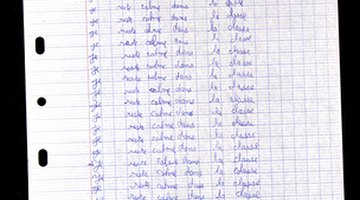 je reste calme dans la classe
je reste calme dans la classe
je reste calme dans la classe
je reste calme dans la classe
je reste calme dans la classe
je reste calme dans la classe
je reste calme dans la classe
je reste calme dans la classe
je reste calme dans la classe
je reste calme dans la classe
je reste calme dans la classe
je reste calme dans la classe
je reste calme dans la classe
je reste calme dans la classe
je reste calme dans la classe
je reste calme dans la classe
je reste calme dans la classe